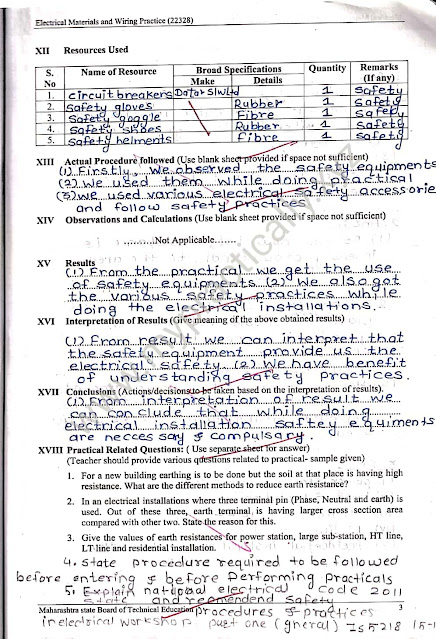 Electrical Materials and Wiring Practice (22328)
XII Resources Used
S. No Name of Resource Broad Specifications Quantity Remarks (If any)
Make Details
1. circuit breakers 1 safety
2. safety gloves Rubber 1 safety
3. safety goggle Fibre 1 safety
4. safety shoes Rubber 1 safety
5. safety helments Fibre 1 safety
XIII Actual Procedure followed (Use blank sheet provided if space not sufficient)
(1) Firstly, we observed the safety equipments
(2) We used them while doing practical
(3) we used various electrical safety accessorie
and follow safety practices
XIV Observations and Calculations (Use blank sheet provided if space not sufficient)
.........Not Applicable......
XV Results
(1) From the practical we get the use
of safety equipments (2) We also got
the various safety practices while
doing the electrical installations...
XVI Interpretation of Results (Give meaning of the above obtained results)
(1) From result we can interpret that
the safet equipment provide us the
electrical safety (2) We have benefit
of understanding safety practices.
XVII Conclusions (Actions/decisions to be taken based on the interpretation of results).
(1) From interpretation of result we
can conclude that while doing
electrical installation saftey equiments
are necces say & compulsary.
XVIII Practical Related Questions: ( Use separate sheet for answer)
(Teacher should provide various questions related to practical- sample given)
1. For a new building earthing is to be done but the soil at that place is having high
resistance. What are the different methods to reduce earth resistance?
2. In an electrical installations where three terminal pin (Phase, Neutral and earth) is
used. Out of these three, earth terminal is having larger cross section area
compared with other two. State the reason for this.
3. Give the values of earth resistances for power station, large sub-station, HT line,
LT line and residential installation.
4. state procedure required to be followed
before entering & before Performing practicals
5. Explain national electrical code 2011
state and recomendend safety
Maharashtra state Board of Technical Education procedures & practices 3
in electrical workshop part one (gneral) IS 5218 15-1